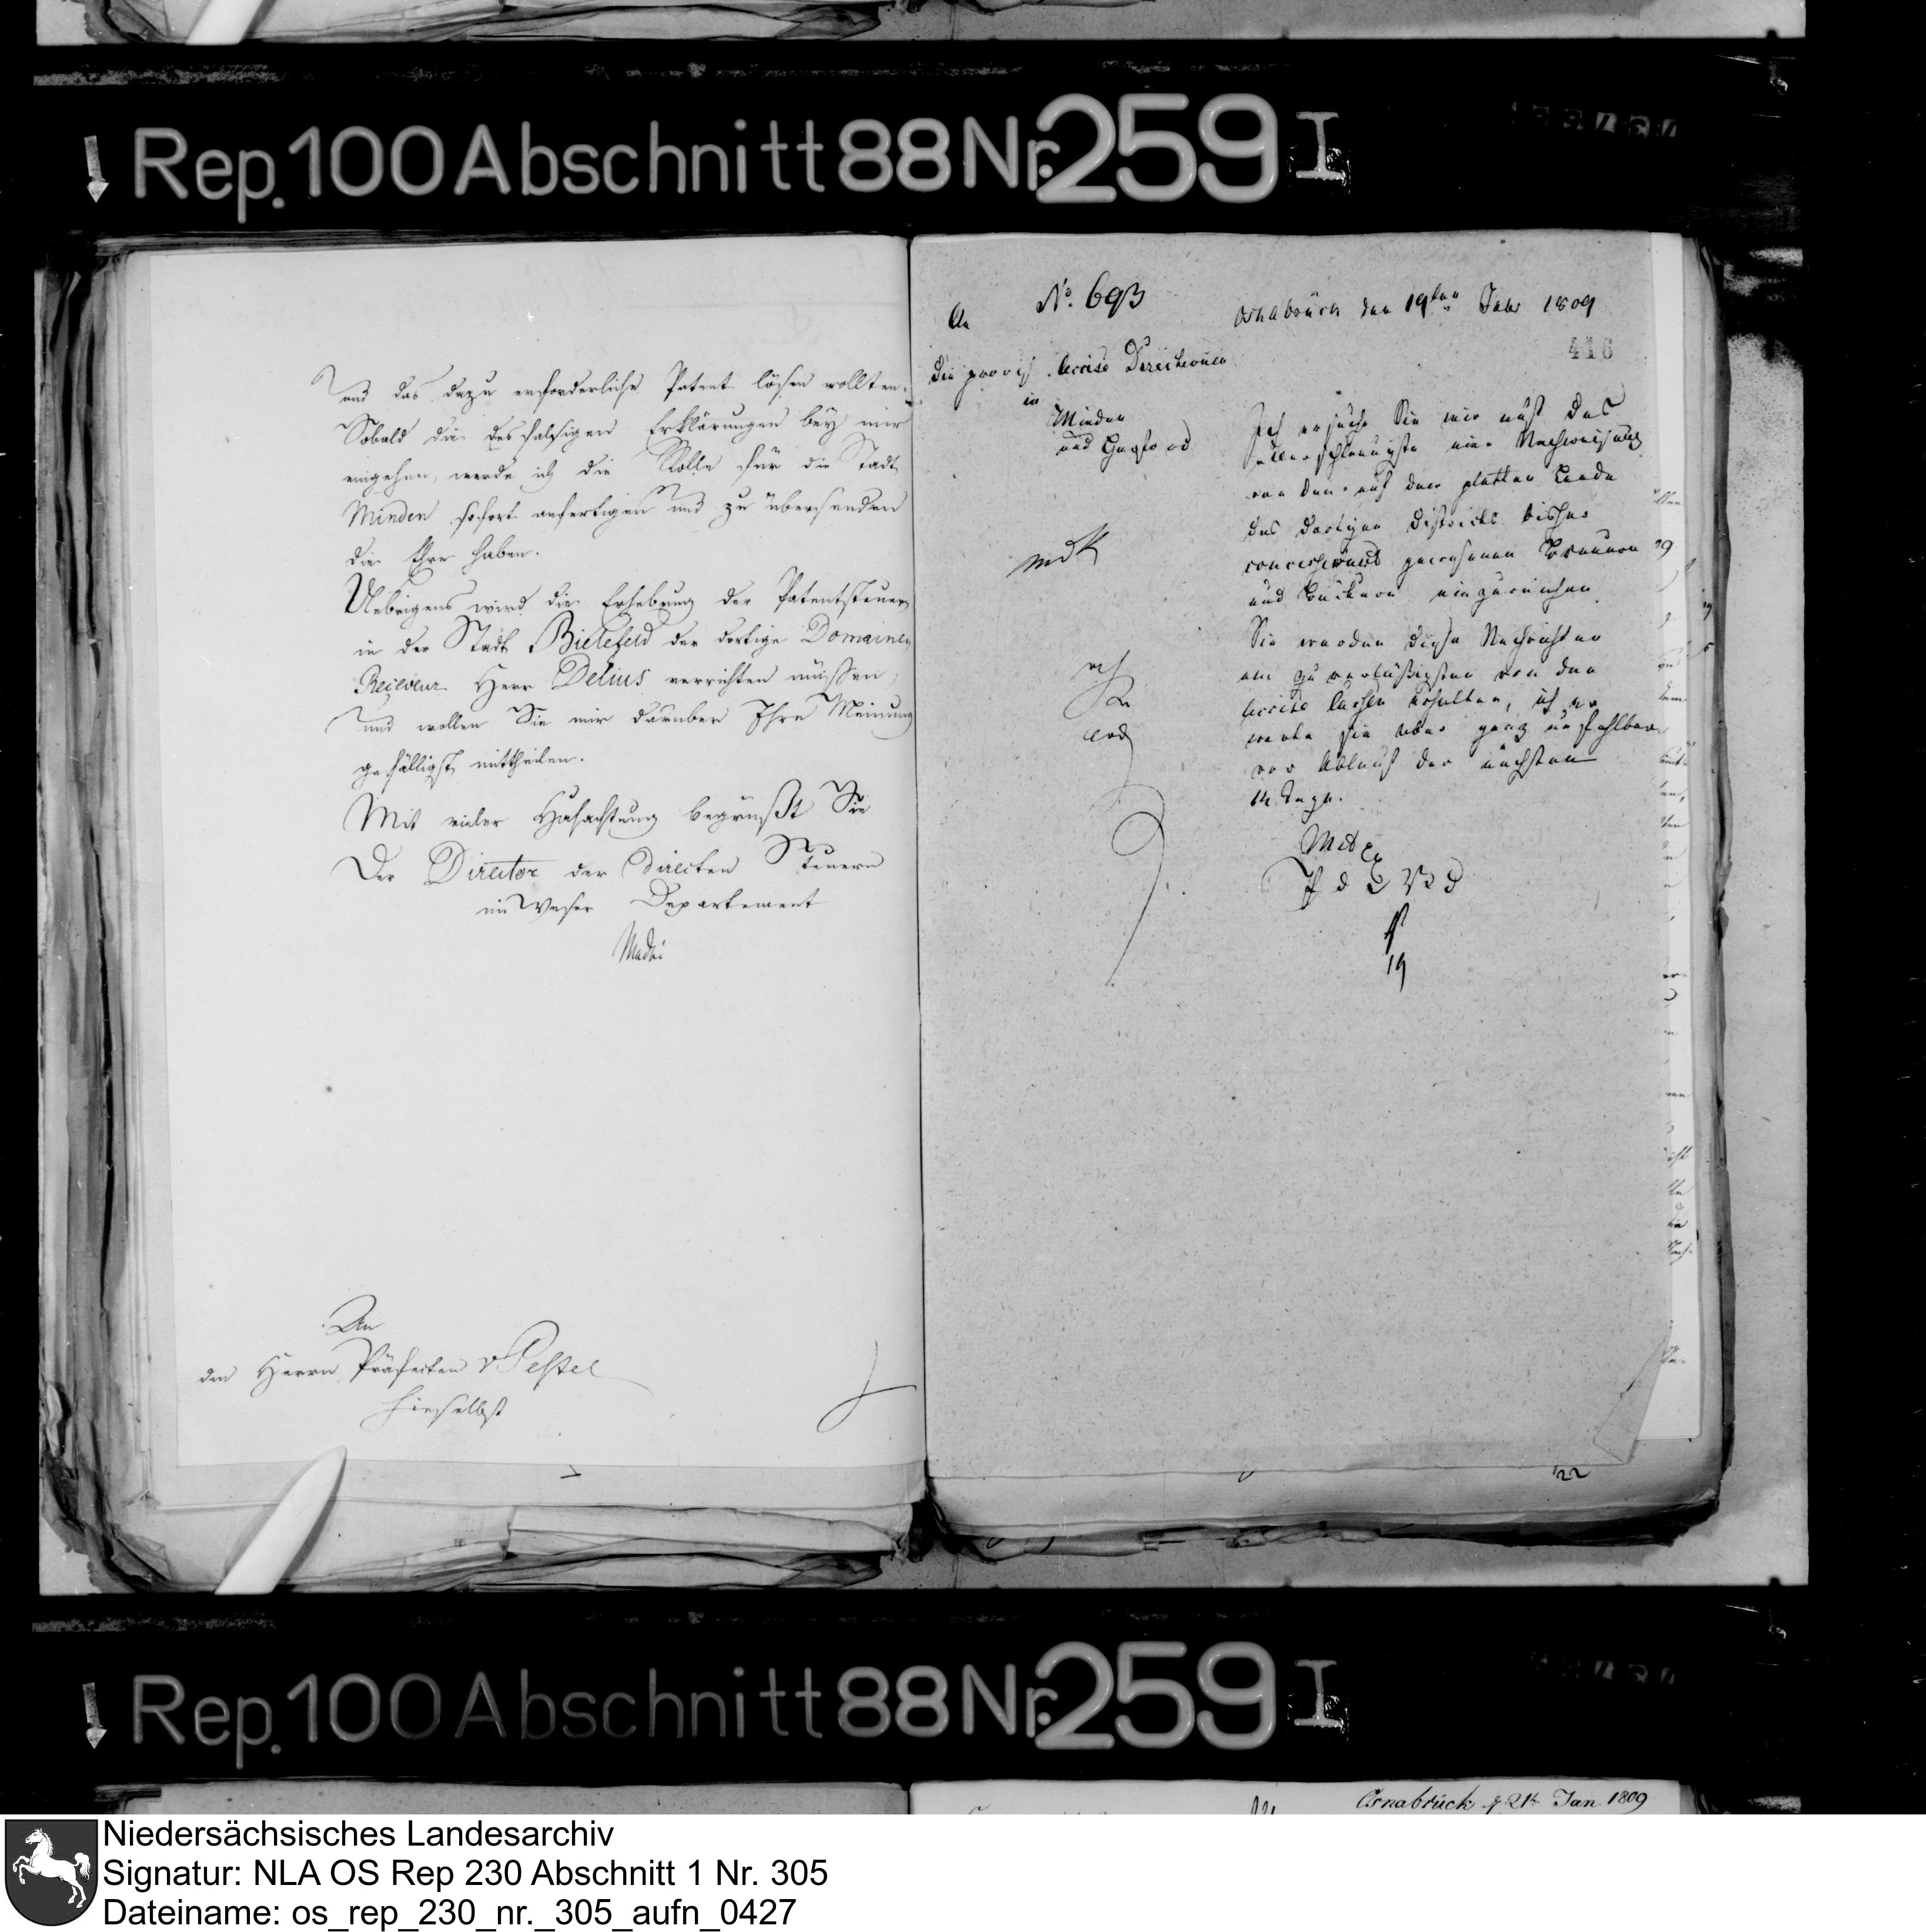 Rep. 100 Abschnitt 88 Nr. 259 I
und das dazu erforderliche Patent lösen wollten.
Sobald die desfalsigen Erklärungen bey mir
eingehen, werde ich die Rolle für die Stadt
Minden sofort anfertigen und zu übersenden
die Ehre haben.
Uebrigens wird die Erhebung der Patentsteuer
in der Stadt Bielefeld der dortige Domainen
Receveur Herr Delius verrichten müssen,
und wollen Sie mir darüber Ihre Meinung
gefälligst mittheilen.
Mit vieler Hochachtung begrüßt Sie
Der Director der directen Steuern
im Weser Departement
An
den Herrn Präfecten v Pestel
hieselbst
No. 693
Osnabrück den 19ten Jan 1809
416
An
die provis Accise Directionen
in
Minden
und Herford
Ich ersuche Sie mir aufs das
allerschleunigste eine Nachweisung
von den auf dem platten Lande
des dortigen Districts bisher
concessionirt gewesenen Brauern
und Bäckern einzureichen
Sie werden diese Nachrichten
am zuverläßigsten von den
Accise Cassen erhalten, ich er
warte sie aber ganz unfehlbar
vor Ablauf der nächsten
14 Tage.
P d W D
19
22
Rep. 100 Abschnitt 88 Nr. 259 I
Osnabrück d 21t Jan 1809
Niedersächsisches Landesarchiv
Signatur: NLA OS Rep 230 Abschnitt 1 Nr. 305
Dateiname: os_rep_230_nr._305_aufn_0427